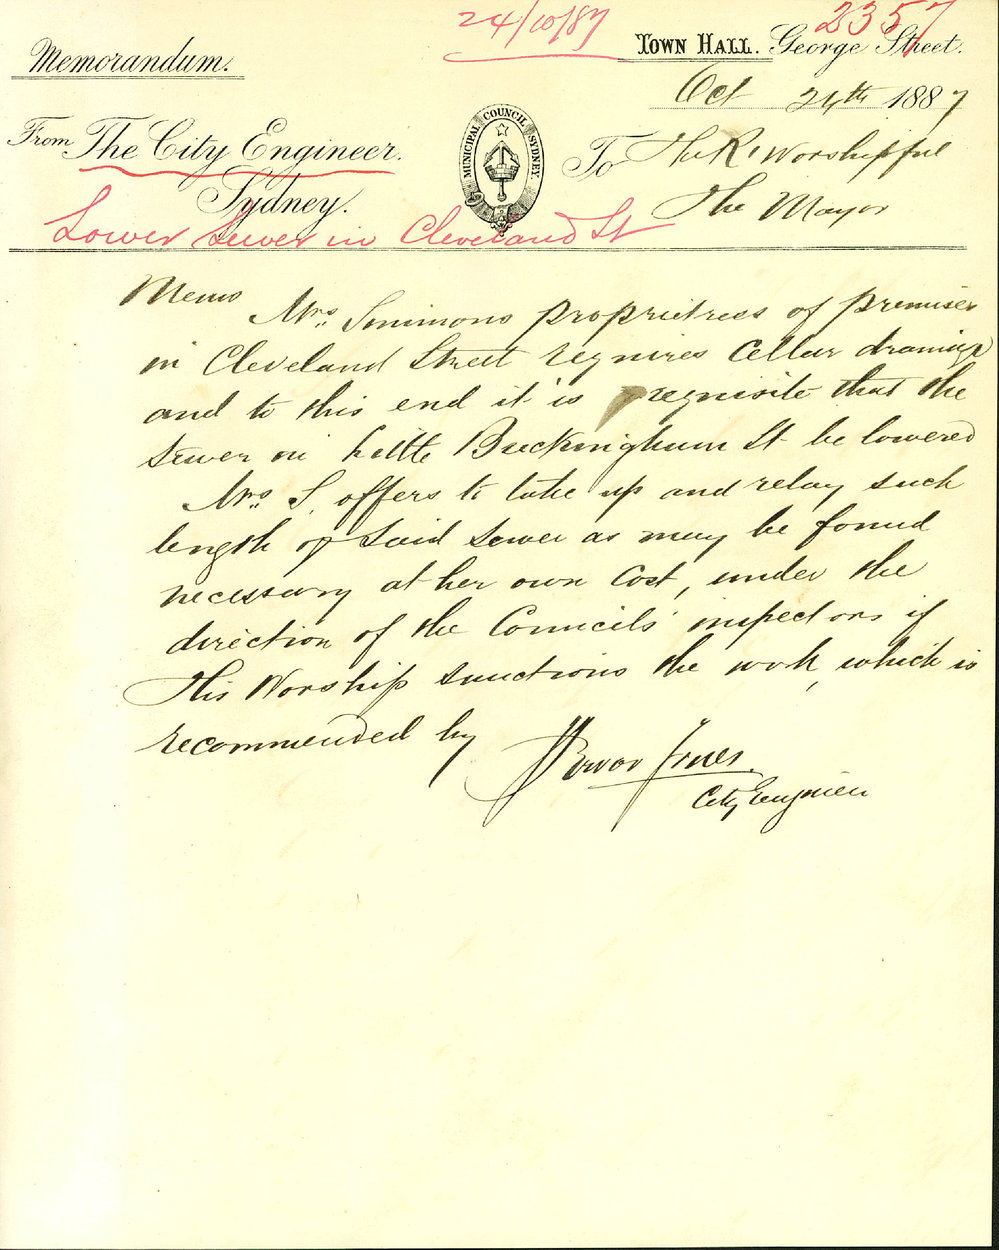 24/10/87
2357
Memorandum.
TOWN HALL. George Street.
Oct 24th 1887
From The City Engineer.
Sydney.
MUNICIPAL COUNCIL SYDNEY.
To The Rt Worshipful
The Mayor
Lower Sewer in Cleveland St
Memo
Mrs. Simmons proprietress of premises
in Cleveland Street requires Cellar drainage
and to this end it is requisite that the
sewer in Little Buckingham St be lowered
Mrs S. offers to take up and relay such
length of said sewer as may be found
necessary at her own Cost, under the
direction of the Councils' inspectors if
His Worship sanctions the work, which is
recommended by
City Engineer